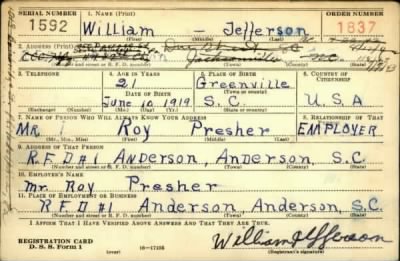 SERIAL NUMBER 1. NAME (Print) ORDER NUMBER
1592 William – Jefferson 1837
(First) (Middle) (Last)
2. ADDRESS (Print)
Jacksonville
(Number and street or R. F. D. number) (Town) (County) (State)
3. TELEPHONE 4. AGE IN YEARS 5. PLACE OF BIRTH 6. COUNTRY OF CITIZENSHIP
21 Greenville
DATE OF BIRTH (Town or county)
June 10, 1919 S.C. U S A
(Exchange) (Number) (Mo.) (Day) (Yr.) (State or country)
7. NAME OF PERSON WHO WILL ALWAYS KNOW YOUR ADDRESS 8. RELATIONSHIP OF THAT PERSON
Mr. Roy Presher EMPLOYER
(Mr., Mrs., Miss) (First) (Middle) (Last)
9. ADDRESS OF THAT PERSON
R.F.D #1 Anderson, Anderson, S.C.
(Number and street or R. F. D. number) (Town) (County) (State)
10. EMPLOYER'S NAME
Mr. Roy Presher
11. PLACE OF EMPLOYMENT OR BUSINESS
R.F.D #1 Anderson, Anderson, S.C.
(Number and street or R. F. D. number) (Town) (County) (State)
I AFFIRM THAT I HAVE VERIFIED ABOVE ANSWERS AND THAT THEY ARE TRUE.
REGISTRATION CARD
D. S. S. Form 1 16—17105
William Jefferson